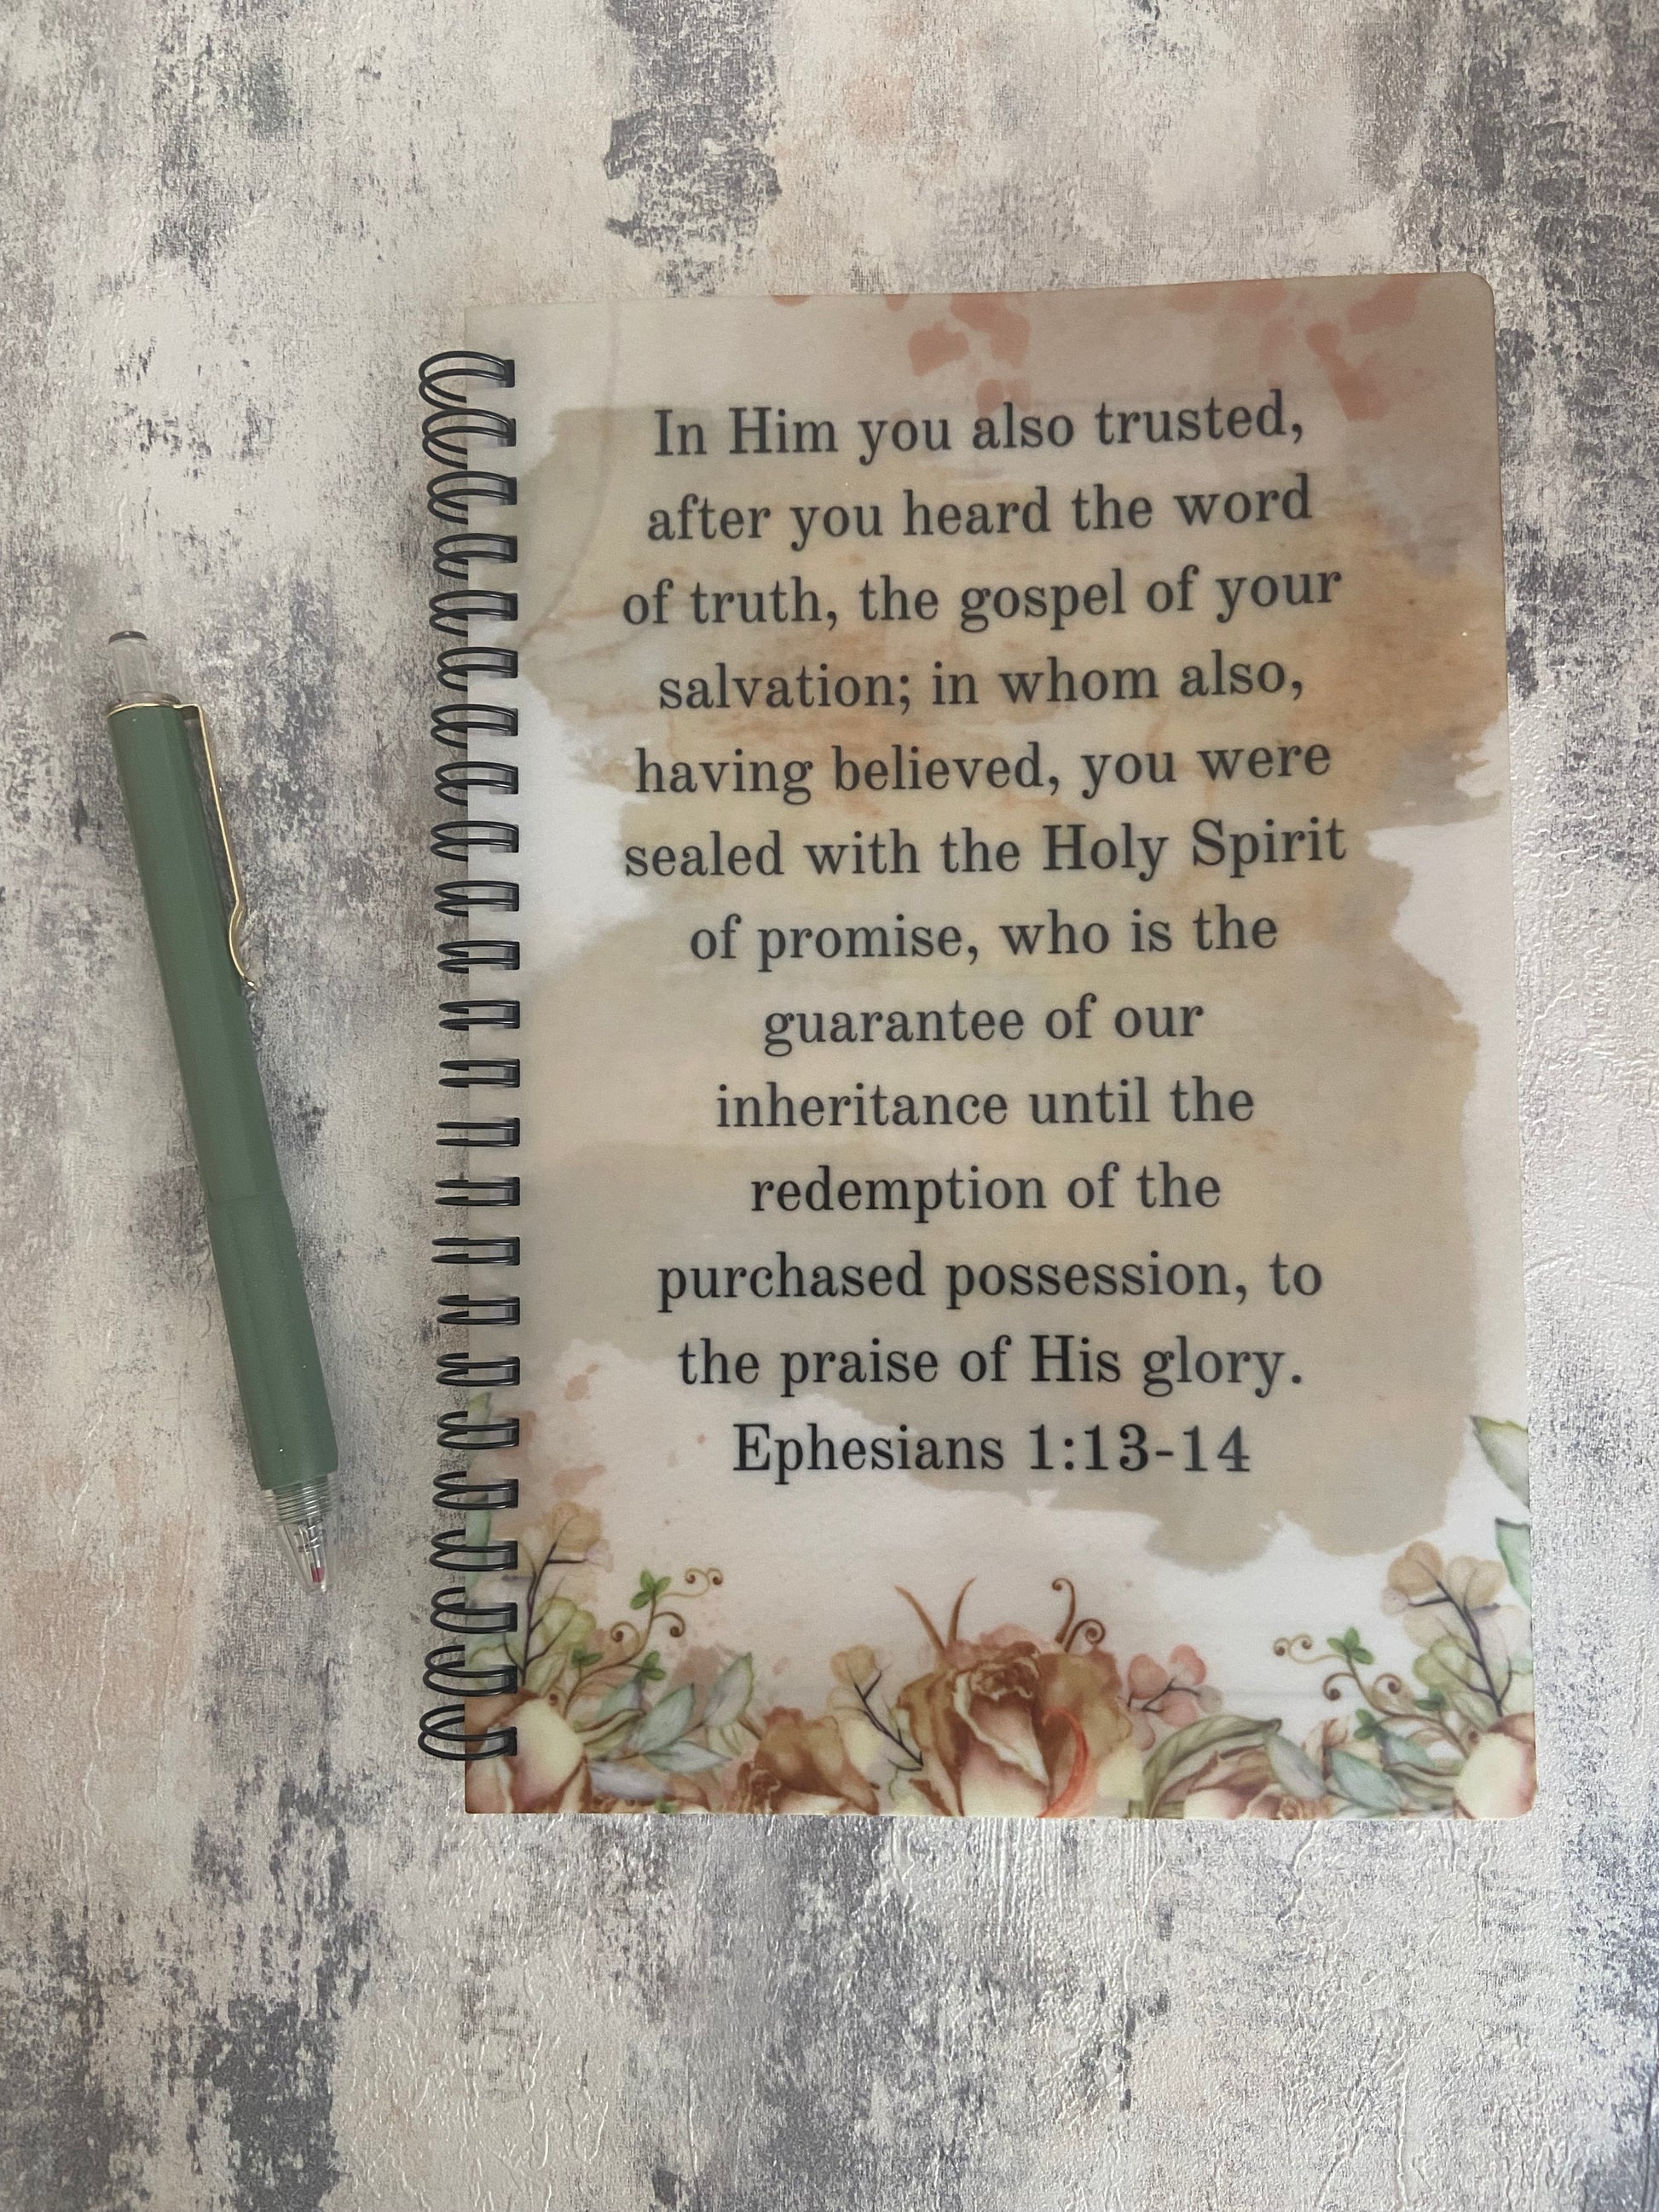 In Him you also trusted,
after you heard the word
of truth, the gospel of your
salvation; in whom also,
having believed, you were
sealed with the Holy Spirit
of promise, who is the
guarantee of our
inheritance until the
redemption of the
purchased possession, to
the praise of His glory.
Ephesians 1:13-14